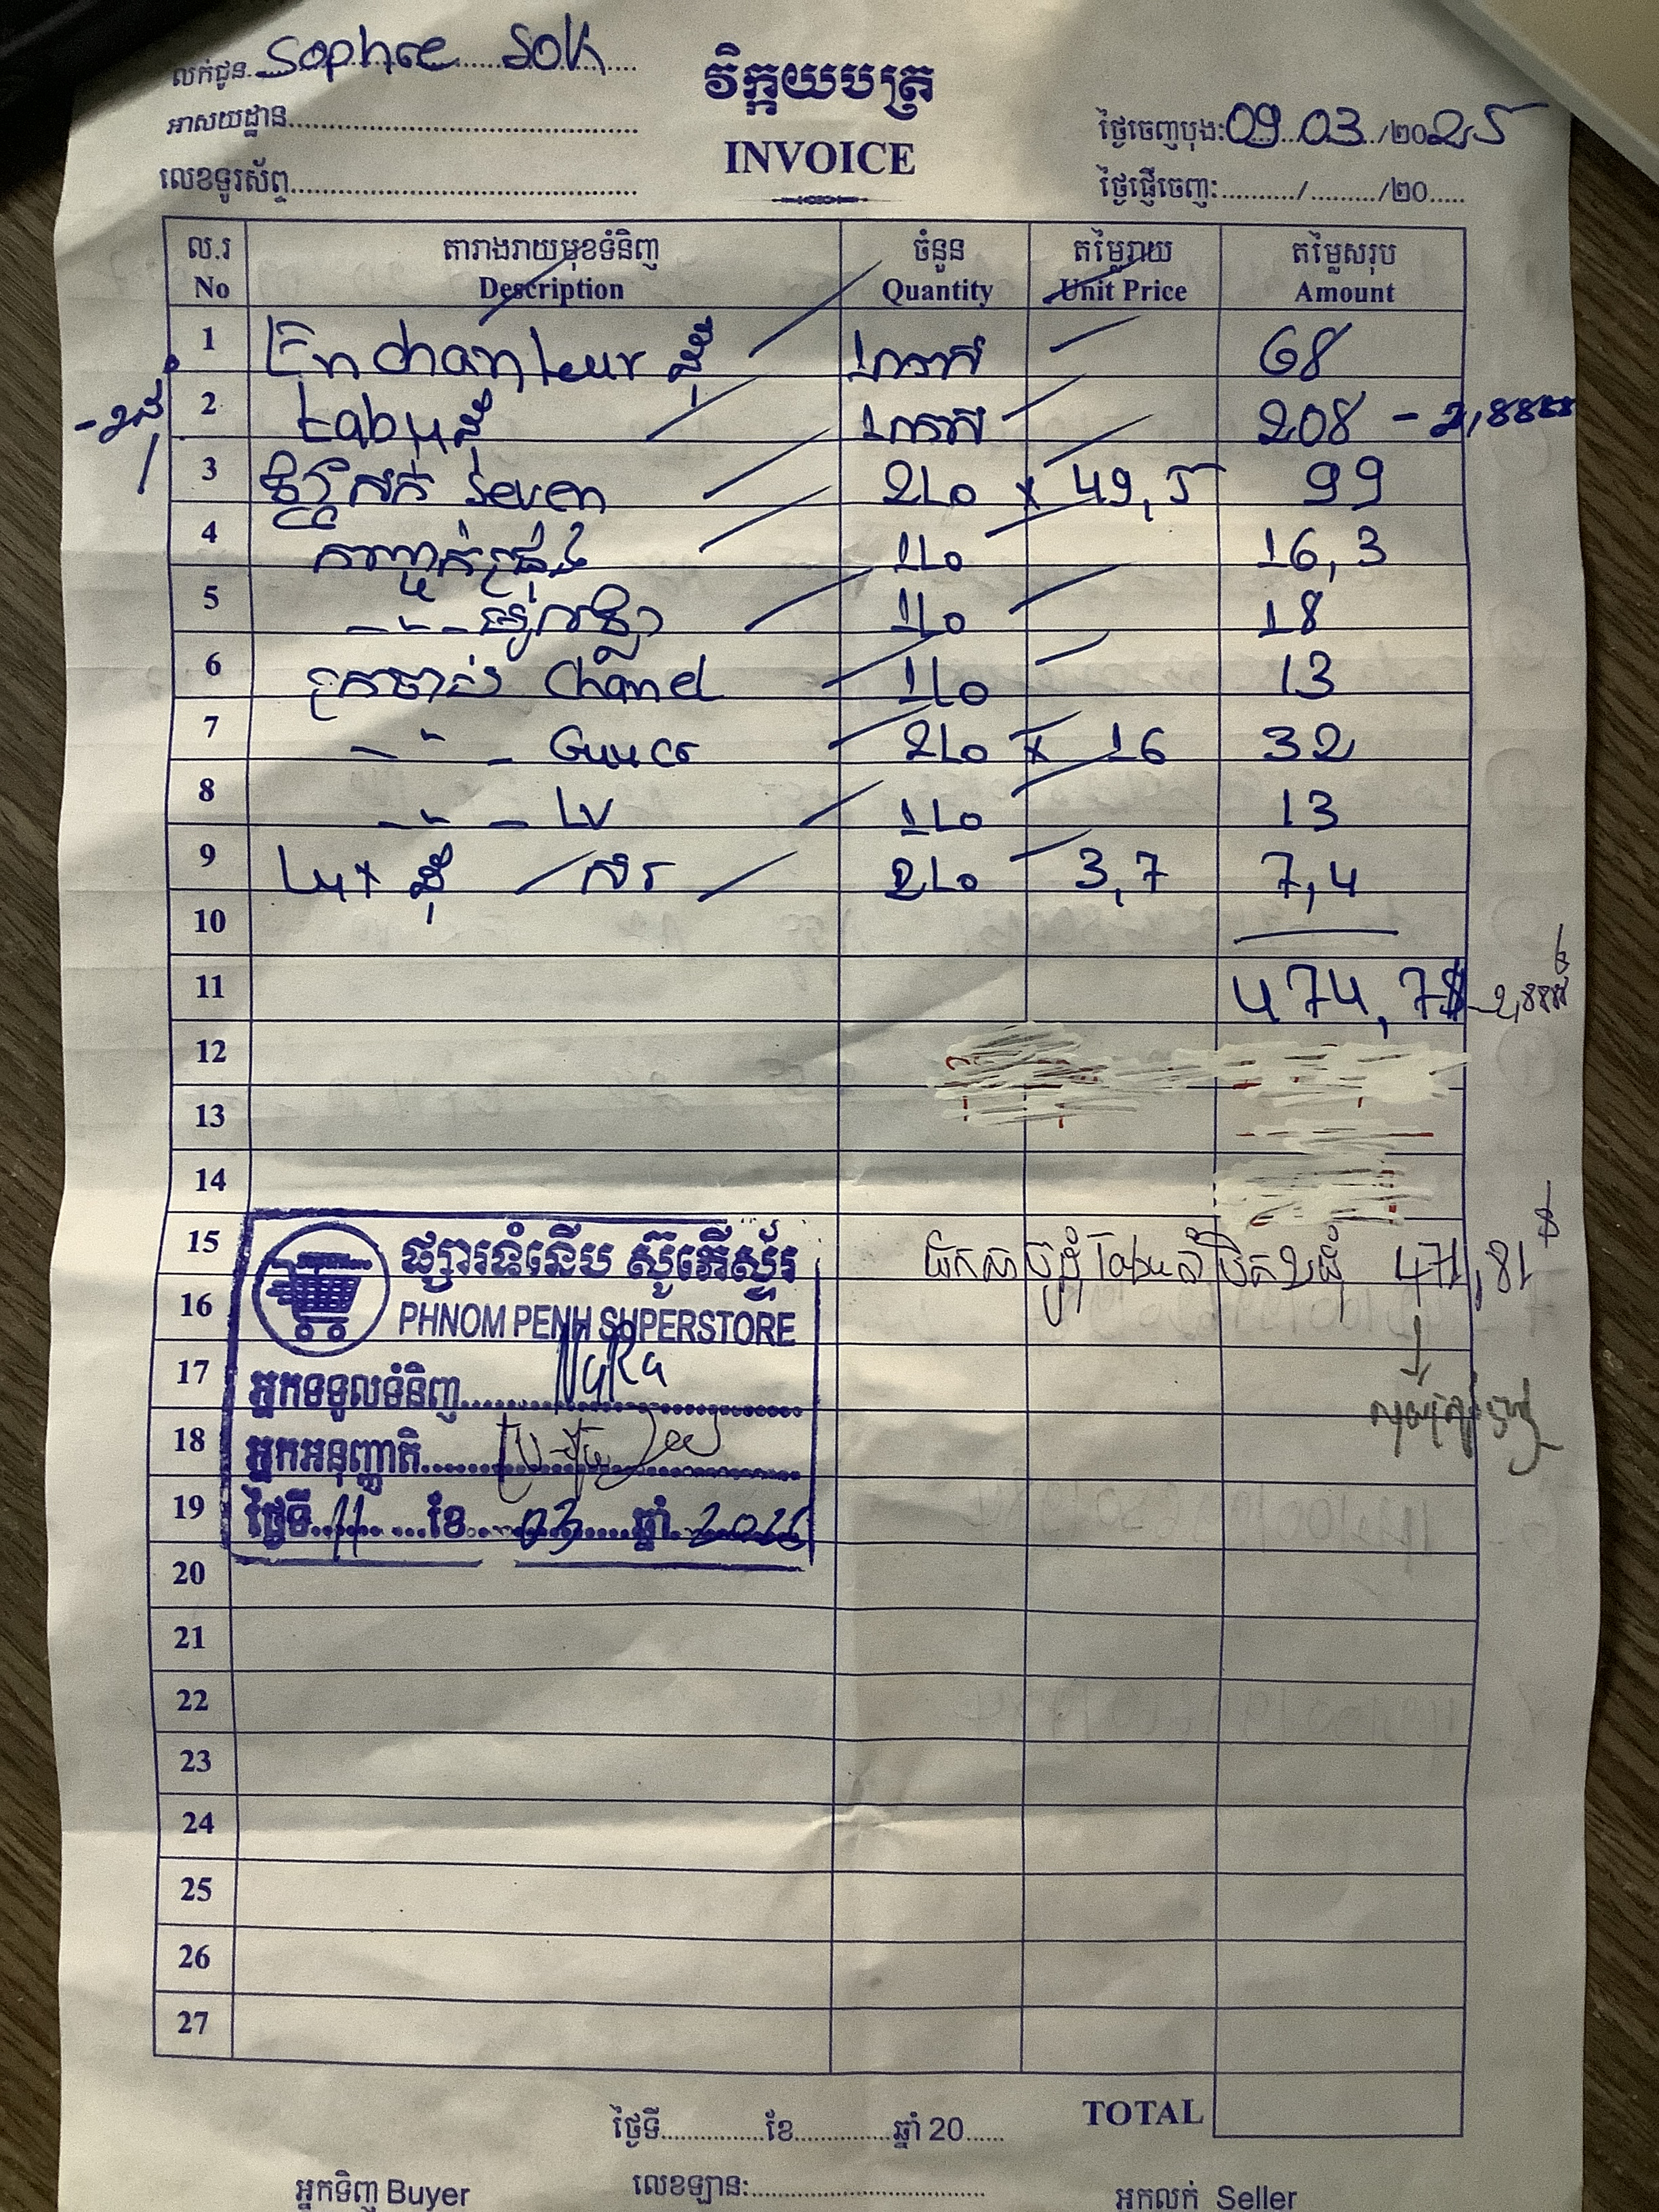 លក់ជូន Sophee Sok
វិក្កយបត្រ
អាសយដ្ឋាន
INVOICE
ថ្ងៃចេញបុង: 09 03 /2025
លេខទូរស័ព្ទ
ថ្ងៃផ្ញើចេញ: / /20
ល.រ តារាងរាយមុខទំនិញ ចំនួន តម្លៃរាយ តម្លៃសរុប
No Description Quantity Unit Price Amount
1 Enchanteur ធុំ 1កេស 68
2 tabuធំ 1កេស 208 - 2,88
3 សក់ Seven 2Lo x 49,5 99
4 1Lo 16,3
5 1Lo 18
6 ក្រចាប់ Chanel 1Lo 13
7 - " - Guucc 2Lo x 16 32
8 - " - LV 1Lo 13
9 Lux ធុំ / សរ 2Lo 3,7 7,4
10
11 474,7$
12
13
14
15 471,81$
16
17
18
19
20
21
22
23
24
25
26
27
ផ្សារទំនើប ស៊ូភើស្ទ័រ
PHNOM PENH SUPERSTORE
អ្នកទទួលទំនិញ
អ្នកអនុញ្ញាតិ
ថ្ងៃទី 11 ខែ 03 ឆ្នាំ
TOTAL
ថ្ងៃទី ខែ ឆ្នាំ 20
អ្នកទិញ Buyer លេខឡាន: អ្នកលក់ Seller